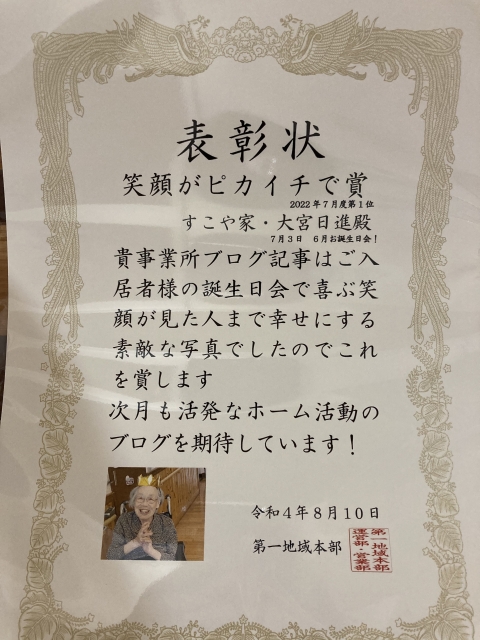 表彰状
笑顔がピカイチで賞
2022年7月度第1位
すこや家・大宮日進殿
7月3日 6月お誕生日会！
貴事業所ブログ記事はご入
居者様の誕生日会で喜ぶ笑
顔が見た人まで幸せにする
素敵な写真でしたのでこれ
を賞します
次月も活発なホーム活動の
ブログを期待しています！
令和4年8月10日
第一地域本部
第一地域本部
運営部・営業部